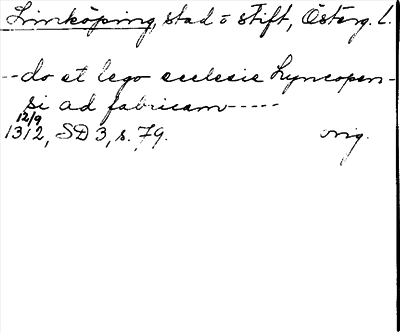 Linköping, stad o stift, Österg. l.
-- do et lego ecclesie Lyncopen-
si ad fabricam -----
12/9
1312, SD 3, s. 79. orig.